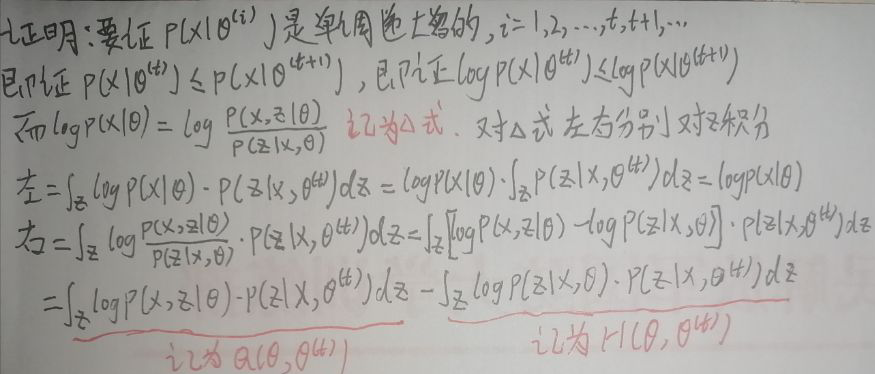 证明:要证 P(X|θ^(i))是单调递增的,i=1,2,…,t,t+1,…
即证 P(X|θ^(t)) ≤ P(X|θ^(t+1)),即证 log P(X|θ^(t)) ≤ log P(X|θ^(t+1))
而 log P(X|θ) = log P(X,Z|θ) / P(Z|X,θ) 记为△式. 对△式左右分别对Z积分
左 = ∫_Z log P(X|θ)·P(Z|X,θ^(t))dZ = log P(X|θ)·∫_Z P(Z|X,θ^(t))dZ = log P(X|θ)
右 = ∫_Z log P(X,Z|θ) / P(Z|X,θ)·P(Z|X,θ^(t))dZ = ∫_Z [log P(X,Z|θ) - log P(Z|X,θ)]·P(Z|X,θ^(t))dZ
= ∫_Z log P(X,Z|θ)·P(Z|X,θ^(t))dZ - ∫_Z log P(Z|X,θ)·P(Z|X,θ^(t))dZ
记为 Q(θ,θ^(t)) 记为 H(θ,θ^(t))